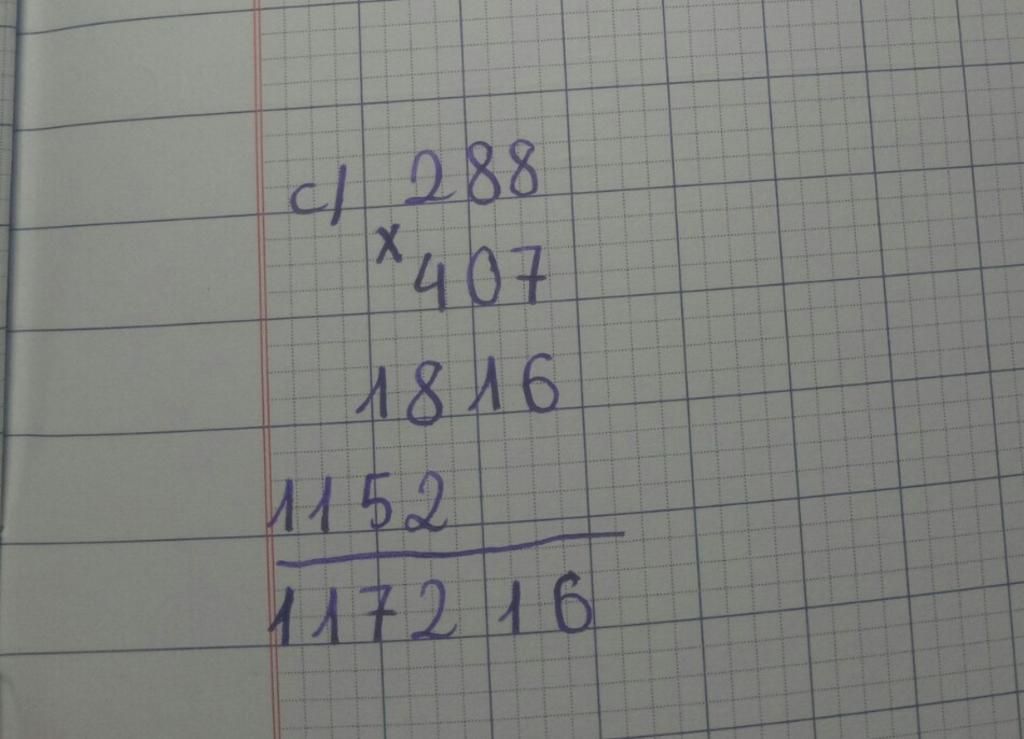 c/ 288
x 407
1816
1152
117216